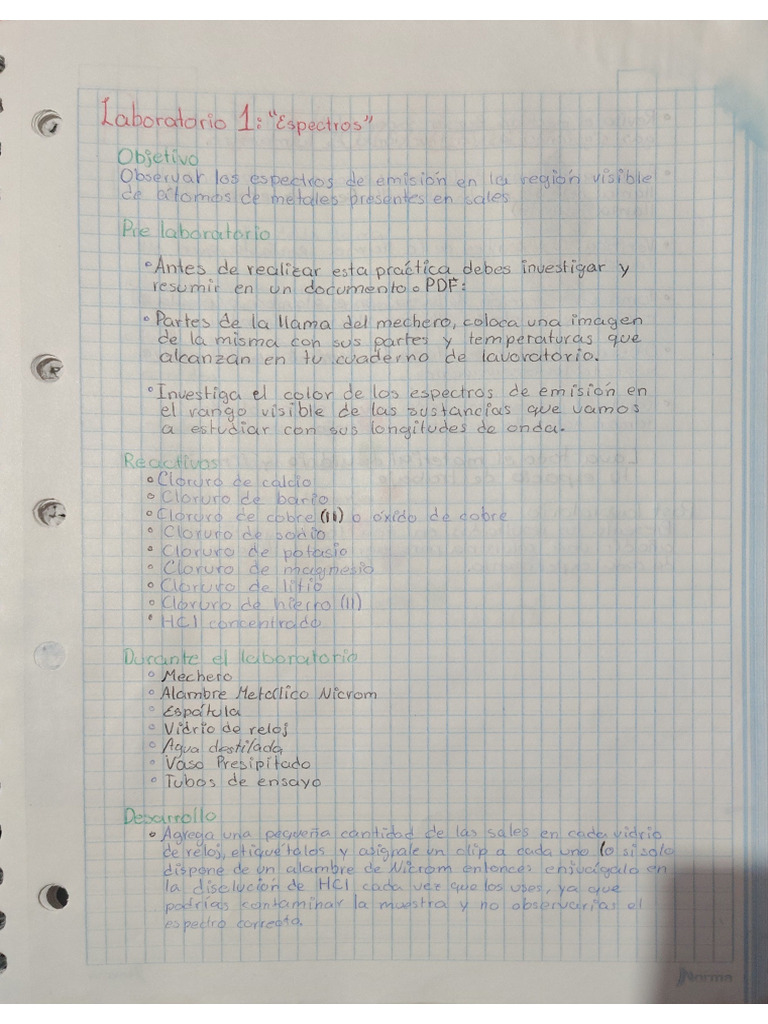 Laboratorio 1: "Espectros"
Objetivo
Observar los espectros de emisión en la región visible
de átomos de metales presentes en sales
Pre laboratorio
• Antes de realizar esta práctica debes investigar y
resumir en un documento o PDF:
• Partes de la llama del mechero, coloca una imagen
de la misma con sus partes y temperaturas que
alcanzan en tu cuaderno de lavoratorio.
• Investiga el color de los espectros de emisión en
el rango visible de las sustancias que vamos
a estudiar con sus longitudes de onda.
Reactivos
• Cloruro de calcio
• Cloruro de bario
• Cloruro de cobre (II) o óxido de cobre
• Cloruro de sodio
• Cloruro de potasio
• Cloruro de magnesio
• Cloruro de litio
• Cloruro de hierro (II)
• HCl concentrado
Durante el laboratorio
• Mechero
• Alambre Metálico Nicrom
• Espátula
• Vidrio de reloj
• Agua destilada
• Vaso Presipitado
• Tubos de ensayo
Desarrollo
• Agrega una pequeña cantidad de las sales en cada vidrio
de reloj, etiquétalos y asígnale un clip a cada uno (o si solo
dispone de un alambre de Nicrom entonces enjuágalo en
la disolución de HCl cada vez que los uses, ya que
podrías contaminar la muestra y no observarías el
espectro correcto.
Norma